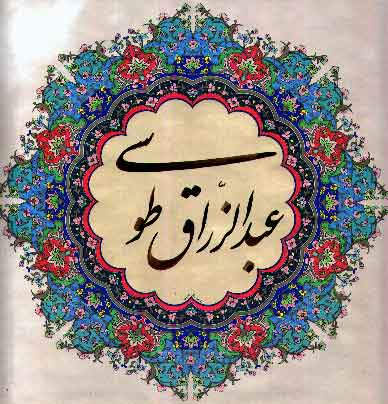 عبدالرّزاق طوسی